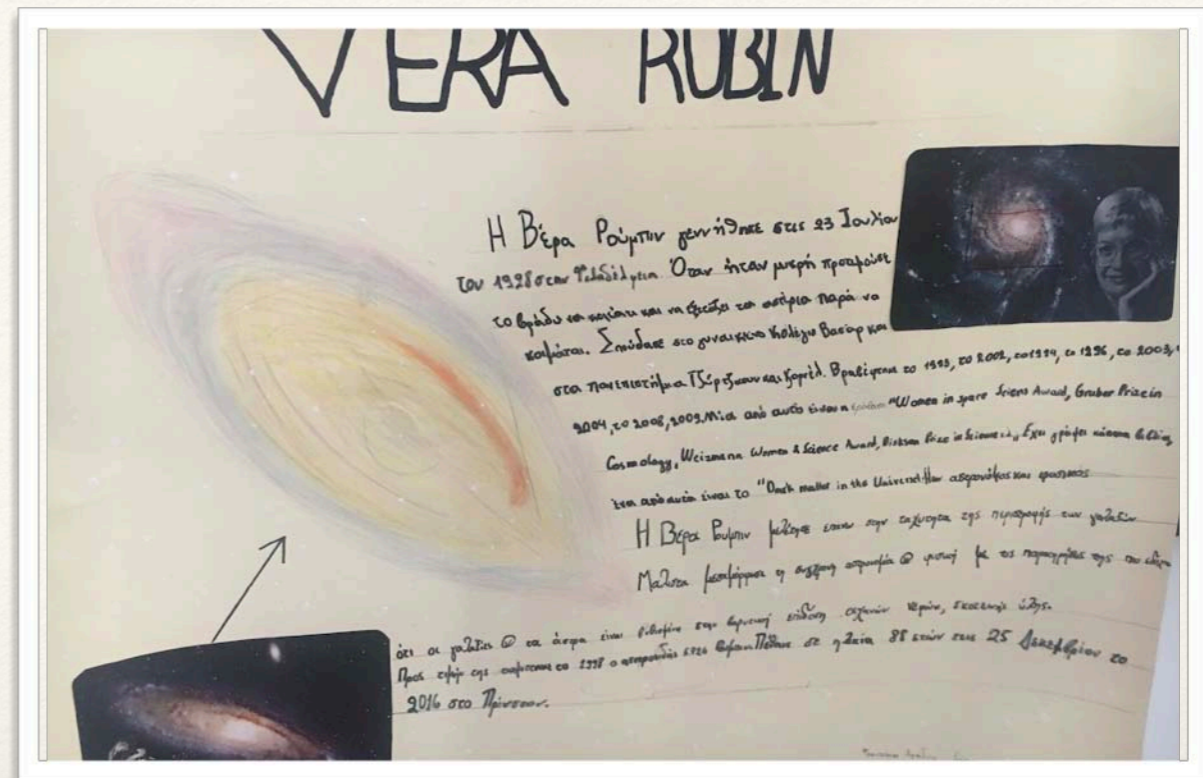 VERA RUBIN
Η Βέρα Ρούμπιν γεννήθηκε στις 23 Ιουλίου
του 1928 στην Φιλαδέλφεια. Όταν ήταν μικρή προτιμούσε
το βράδυ να κάθεται και να εξετάζει τα αστέρια παρά να
κοιμάται. Σπούδασε στο γυναικείο Κολέγιο Βασάρ και
στα πανεπιστήμια Τζόρτζταουν και Κορνέλ. Βραβεύτηκε το 1993, το 2002, το 1994, το 1996, το 2003,
2004, το 2008, 2009. Μία από αυτά είναι "Women in space Award, Gruber Prize in
Cosmology, Weizmann Women & Science Award, Dickson Prize in Science Έχει γράψει κάποια βιβλία,
ένα από αυτά είναι το "Dark matter in the Universe
Η Βέρα Ρούμπιν επάνω στην ταχύτητα της περιστροφής των γαλαξιών
Μάλιστα τη σύγχρονη @ φυσική με τις παρατηρήσεις της που
ότι οι γαλαξίες @ τα άστρα είναι στην βαρυτική σκοτεινής ύλης.
Προς τιμήν της το 1998 ο Πέθανε σε ηλικία 88 ετών στις 25 Δεκεμβρίου το
2016 στο Πρίνστον.